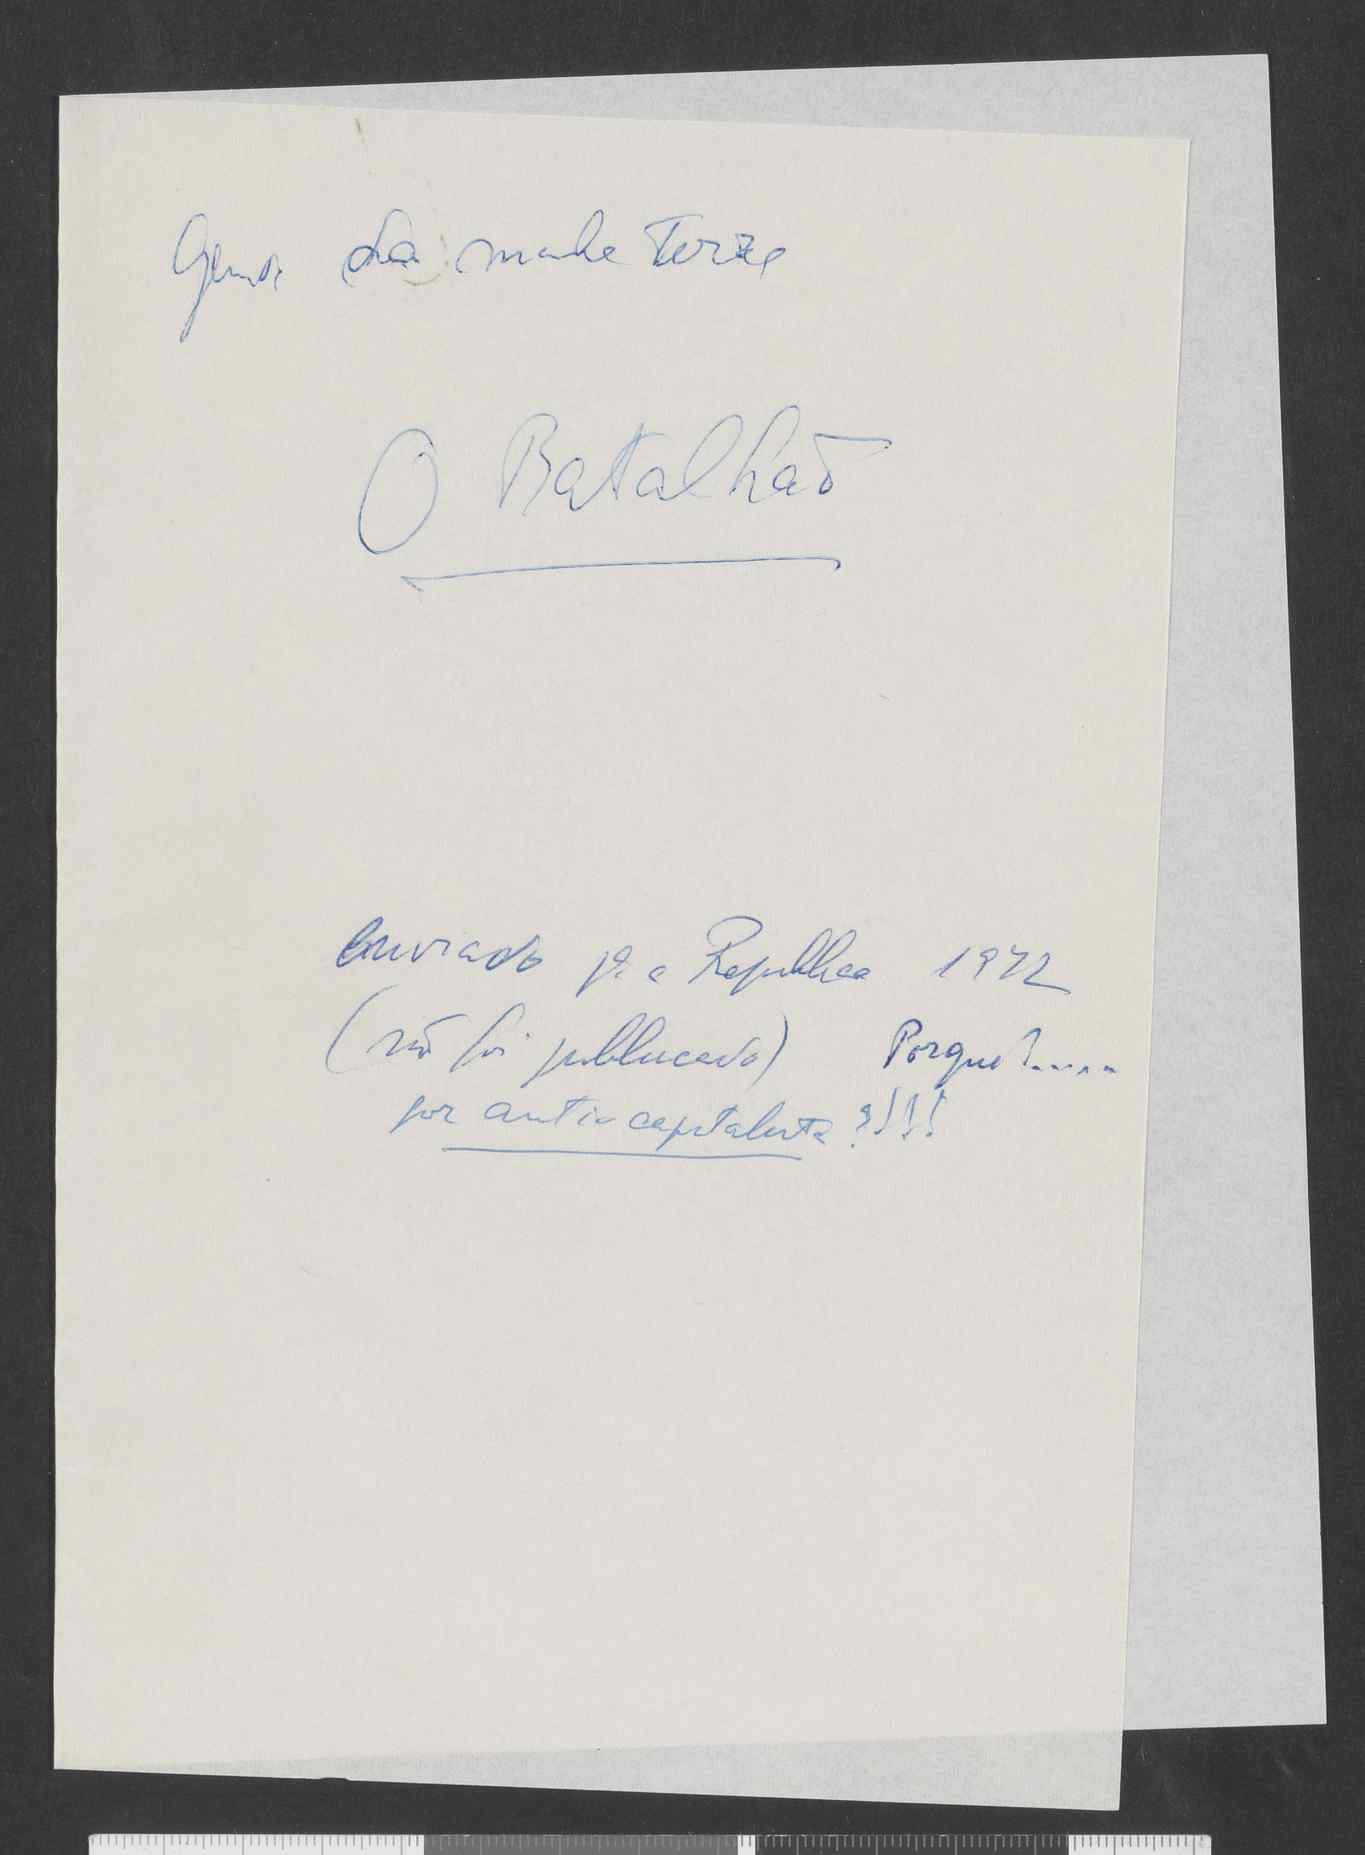 Gente da minha Terra
O Batalhão
enviado pª a Republica 1972
(não foi publicado) Porquê?.....
por anti-capitalista ?!!!